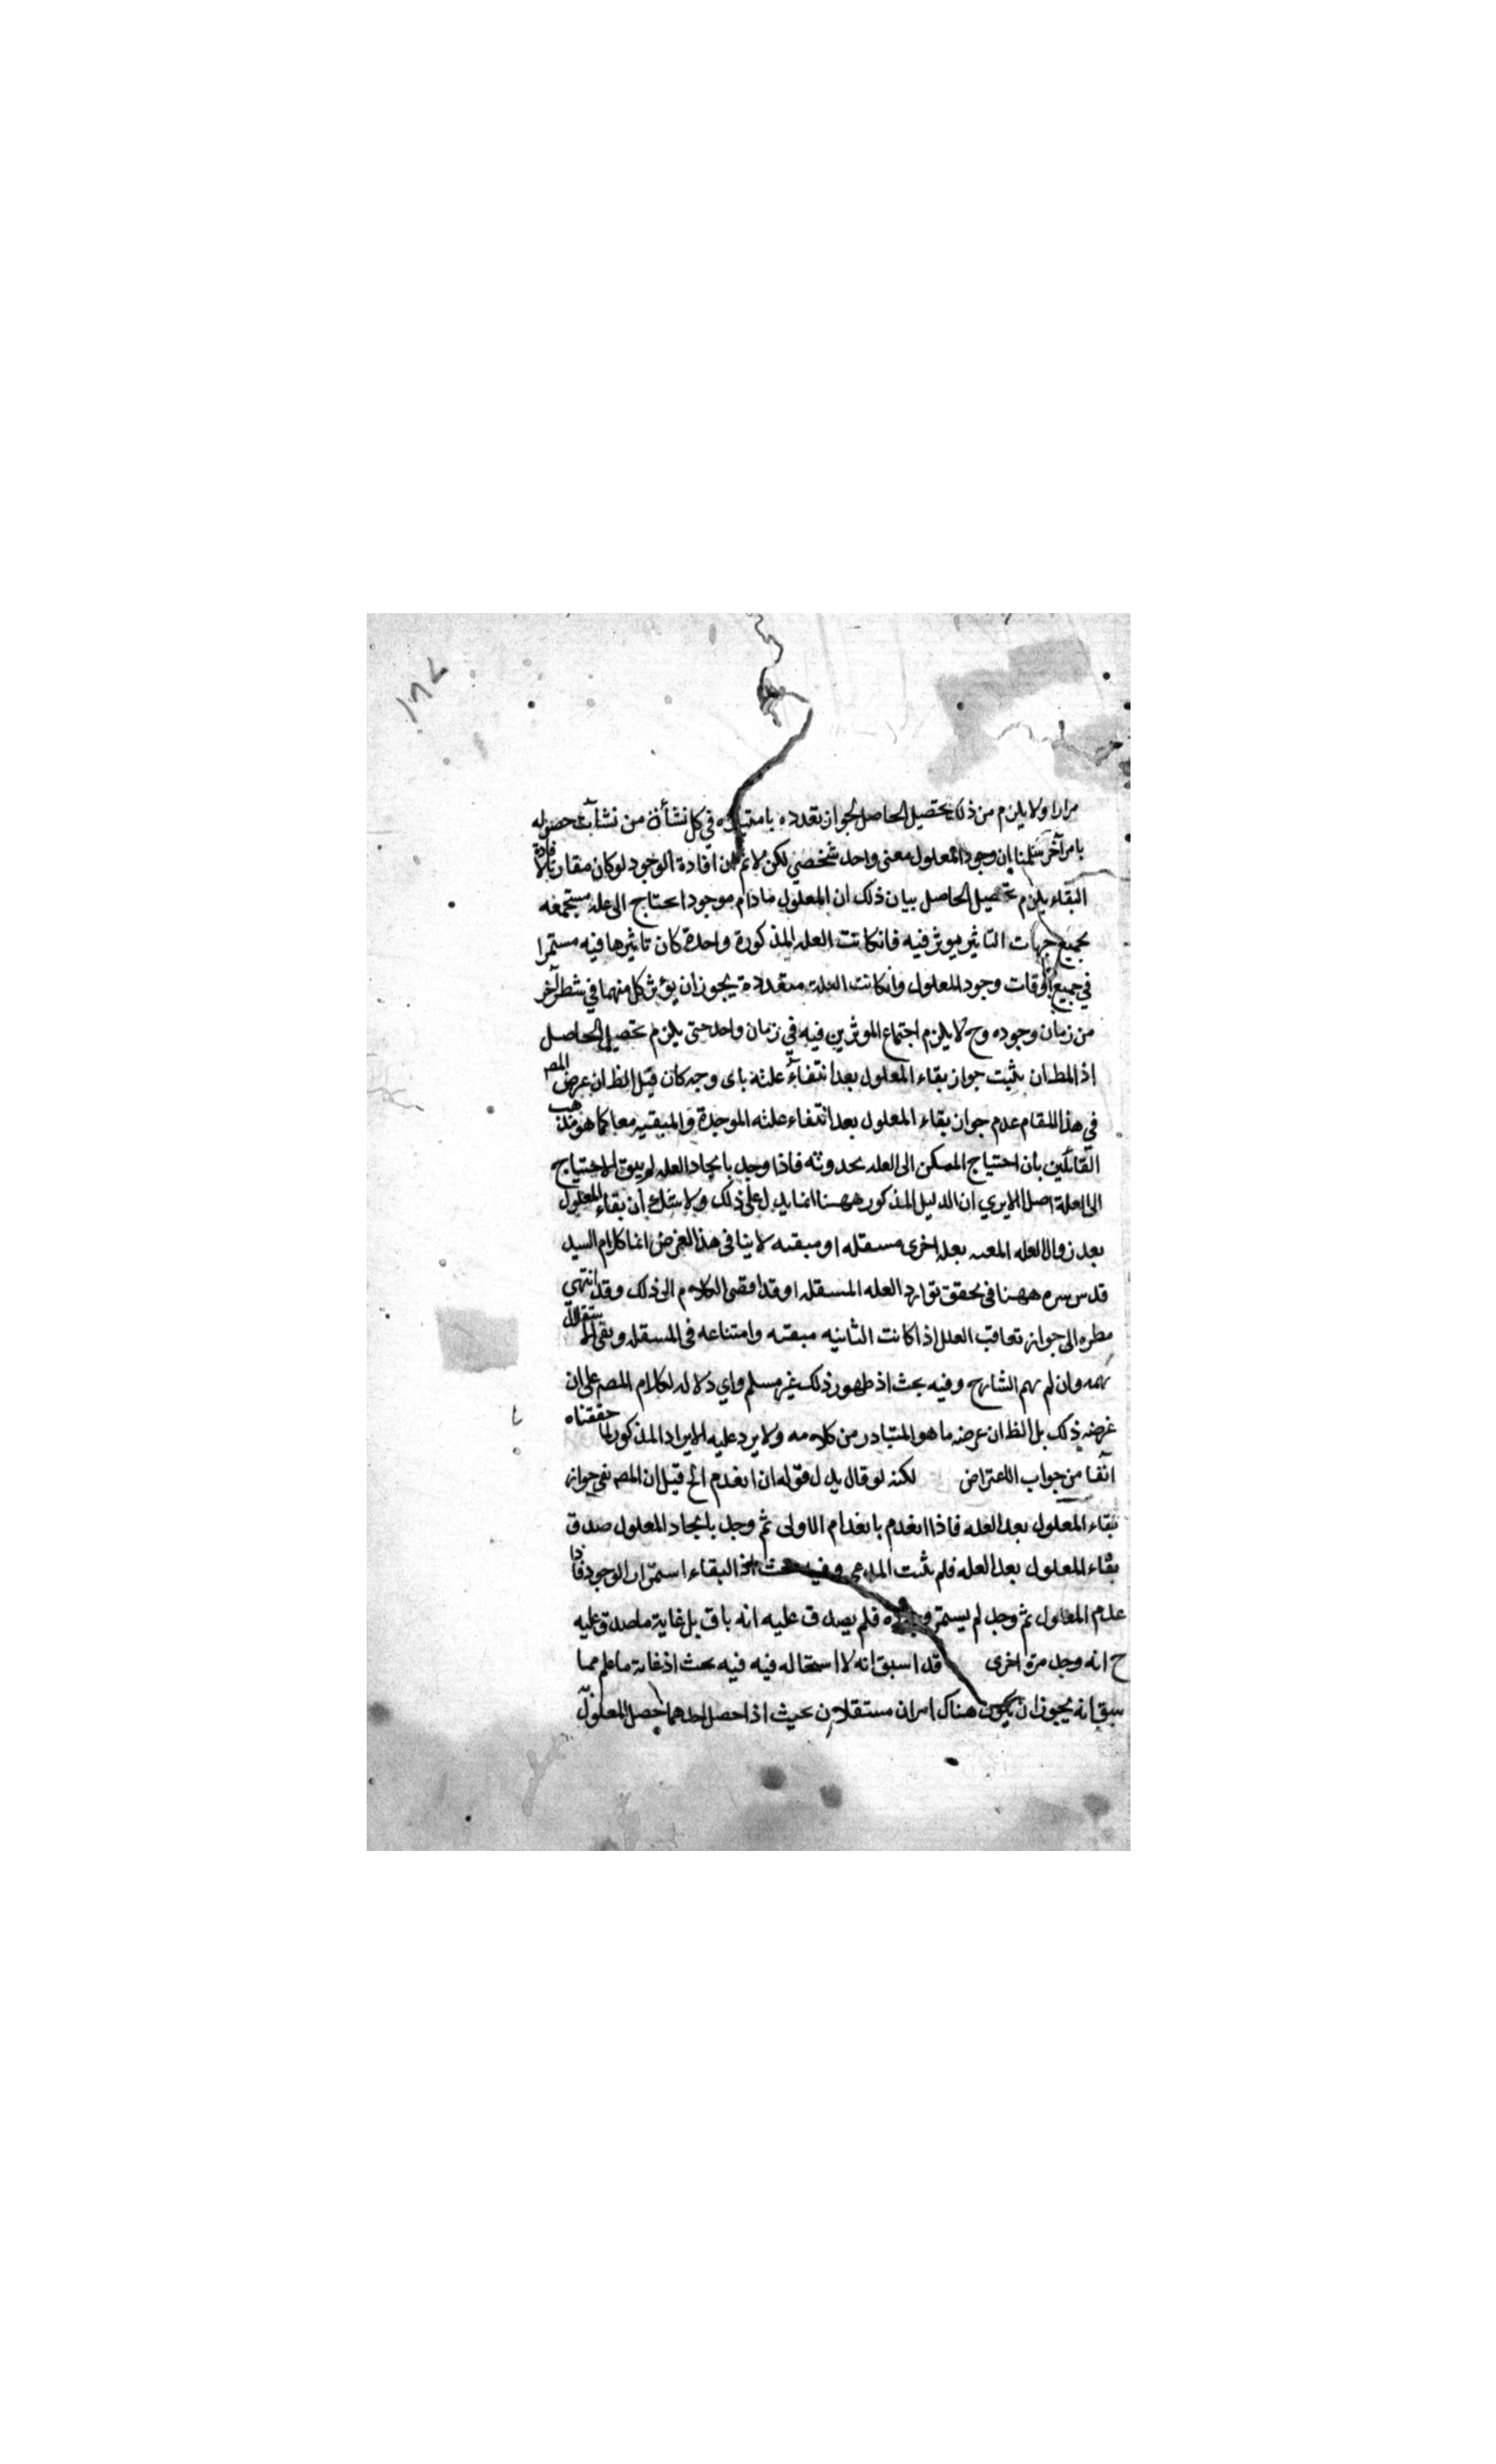 ١٨٧
مرارا ولا يلزم من ذلك تحصيل الحاصل لجواز تعدده باعتباره في كل نشأة من نشآت حصوله
بامر آخر سلمنا ان وجود المعلول معنى واحد شخصي لكن لا نم ان افادة الوجود لو كان مقارنا لافادة
البقاء يلزم تحصيل الحاصل بيان ذلك ان المعلول مادام موجودا محتاج الى علة مستجمعه
بجميع جهات التاثير موثر فيه فان كانت العله المذكورة واحدة كان تاثيرها فيه مستمرا
في جميع اوقات وجود المعلول وان كانت العلة متعددة يجوز ان يؤثر كل منهما في شطر آخر
من زمان وجوده وح لا يلزم اجتماع الموثرين فيه في زمان واحد حتى يلزم تحصيل الحاصل
اذ المط ان يثبت جواز بقاء المعلول بعد انتفاء علته باى وجه كان قيل الظ ان غرض المصـ
في هذا المقام عدم جواز بقاء المعلول بعد انتفاء علته الموجدة والمبقيه معا كما هو مذهب
القائلين بان احتياج الممكن الى العله بحدوثه فاذا وجد بايجاد العله لم يبق له احتياج
الى العلة اصلا الا يري ان الدليل المذكور ههنا انما يدل على ذلك ولا شك ان بقاء المعلول
بعد زوال العله المعينه بعله اخرى مستقله او مبقيه لا ينافى هذا الغرض انما كلام السيد
قدس سره ههنا فى تحقق توارد العله المستقله اوقد افضى الكلام الى ذلك وقد انتهى
نظره الى جواز تعاقب العلل اذا كانت الثانيه مبقيه وامتناعه فى المستقله وبقى الاستقلال
وان لم الشارح وفيه بحث اذ ظهور ذلك غير مسلم واي دلاله لكلام المصـ على ان
غرضه ذلك بل الظ ان غرضه ما هو المتبادر من كلامه ولا يرد عليه الايراد المذكور لما حققناه
آنفا من جواب الاعتراض لكنه لو قال بدل قوله ان انعدم الخ قيل ان المصـ نفى جواز
بقاء المعلول بعد العله فاذا انعدم بانعدام الاولى ثم وجد بايجاد المعلول صدق
بقاء المعلول بعد العله فلم يثبت المدعى وفيه بحث اذ البقاء استمرار الوجود فاذا
عدم المعلول ثم وجد لم يستمر وجوده فلم يصدق عليه انه باق بل غاية ما صدق عليه
ح انه وجد مرة اخرى قد اسبق انه لا استحاله فيه فيه بحث اذ غاية ما علم مما
سبق انه يجوز ان يكون هناك امران مستقلان بحيث اذا حصل احدهما حصل المعلول